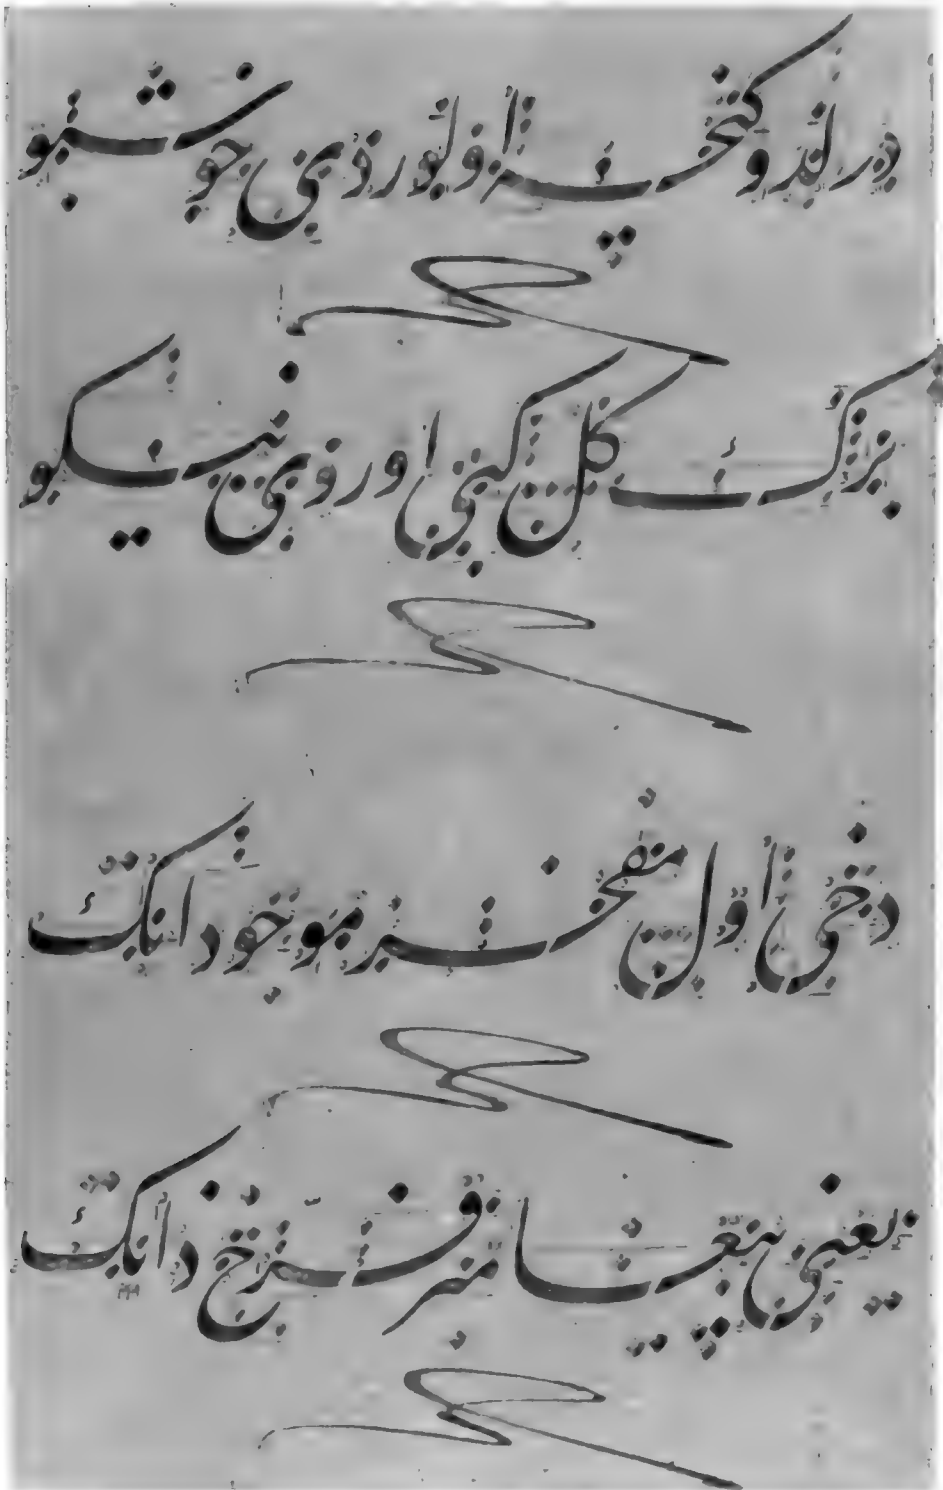 درلندوكجه اولوردي خوشبو
برك كل كبي اوروي نيكو
دخي اول مفخر موجوداتك
يعني پيغامبر فرخ ذاتك